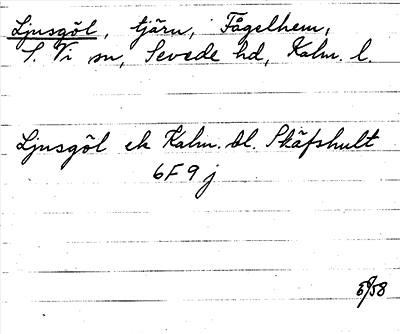 Ljusgöl, tjärn, Fågelhem,
S. Vi sn, Sevede hd, Kalm. l.
Ljusgöl ek Kalm. bl. Skäfshult
6F9j